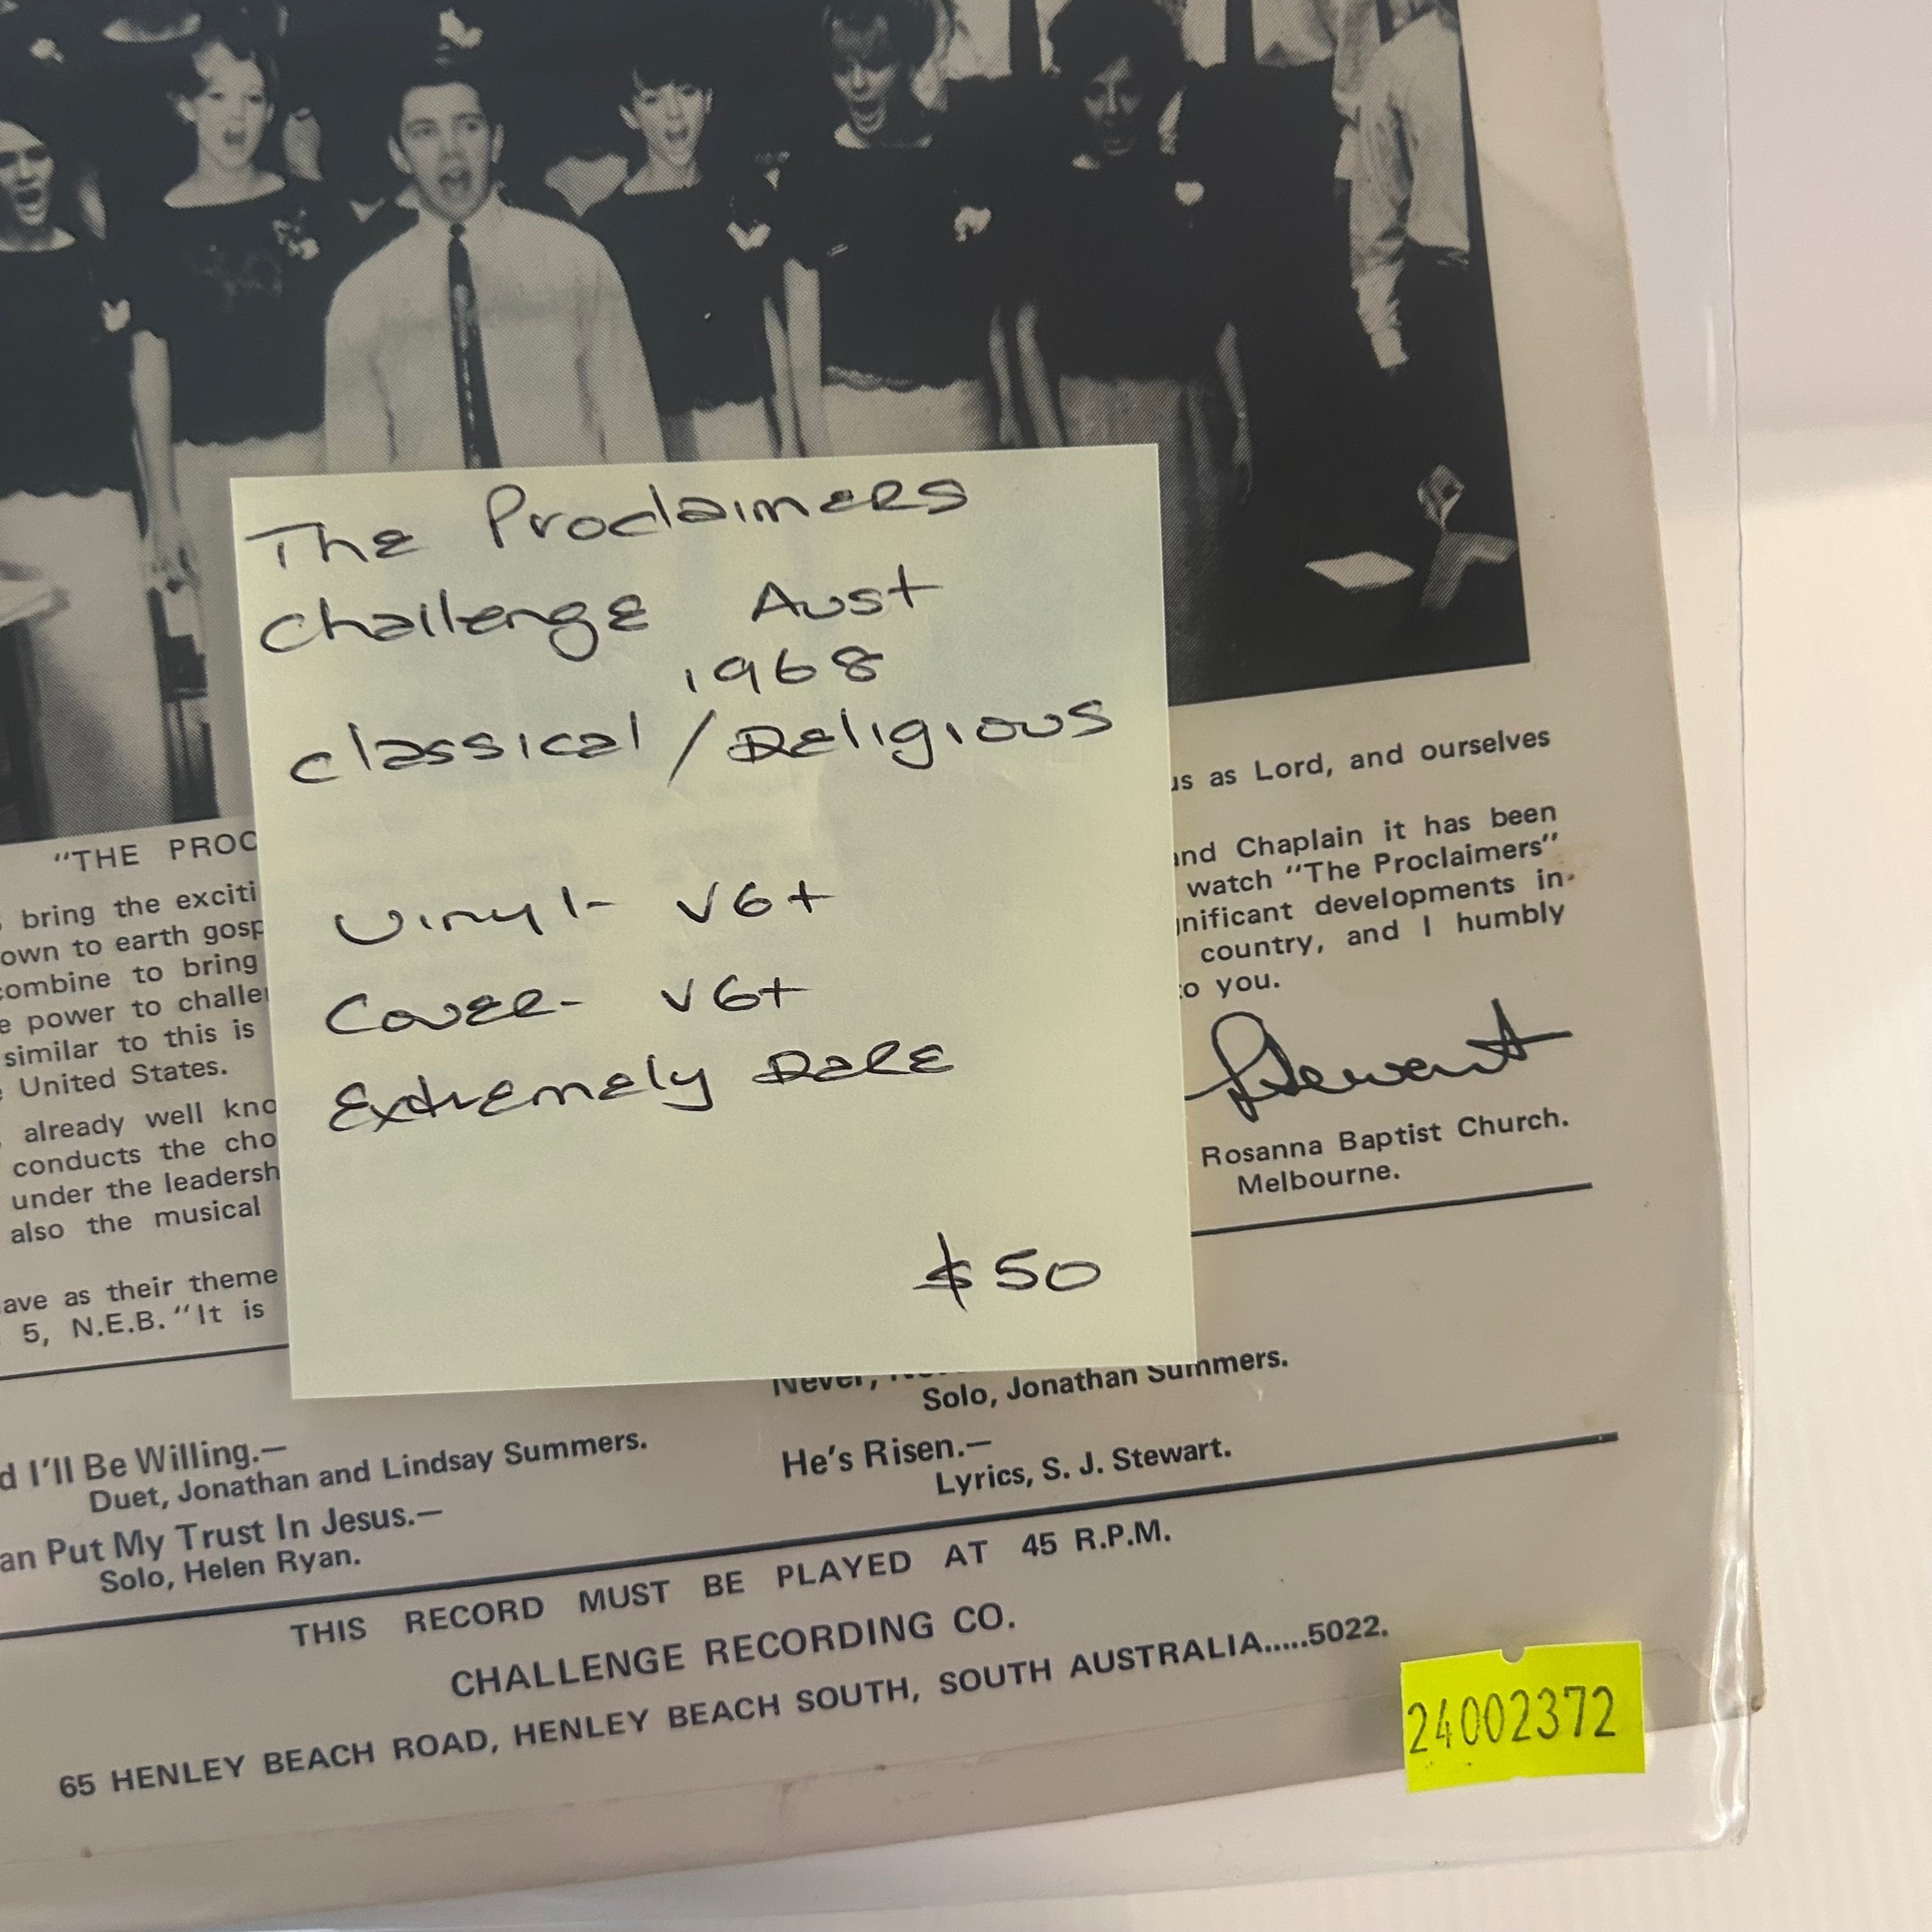 The Proclaimers
Challenge Aust
1968
Classical / Religious
Vinyl- VG+
Cover- VG+
Extremely Rare
$50
"THE PROC
bring the exciti
own to earth gosp
combine to bring
e power to challe
similar to this is
United States.
already well kno
conducts the cho
under the leadersh
also the musical
ave as their theme
5, N.E.B. "It is
us as Lord, and ourselves
and Chaplain it has been
watch "The Proclaimers"
gnificant developments in-
country, and I humbly
to you.
Stewart
Rosanna Baptist Church.
Melbourne.
d I'll Be Willing.—
Duet, Jonathan and Lindsay Summers.
an Put My Trust In Jesus.—
Solo, Helen Ryan.
Never,
Solo, Jonathan Summers.
He's Risen.—
Lyrics, S. J. Stewart.
THIS RECORD MUST BE PLAYED AT 45 R.P.M.
CHALLENGE RECORDING CO.
65 HENLEY BEACH ROAD, HENLEY BEACH SOUTH, SOUTH AUSTRALIA.....5022.
24002372